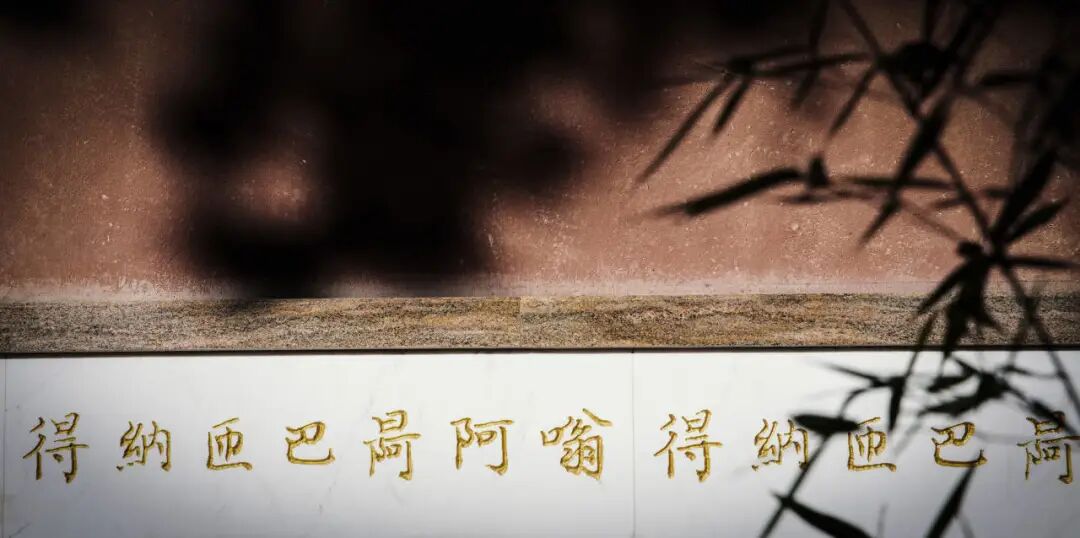 曷巴匝納得嗡阿曷巴匝納得